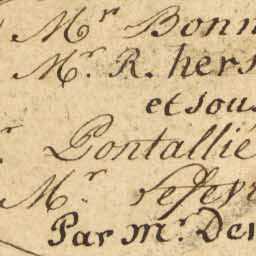 Mr Bonn
Mr. R. hers
et sous
Pontallie
Mr Lefevr
Par mr. Der